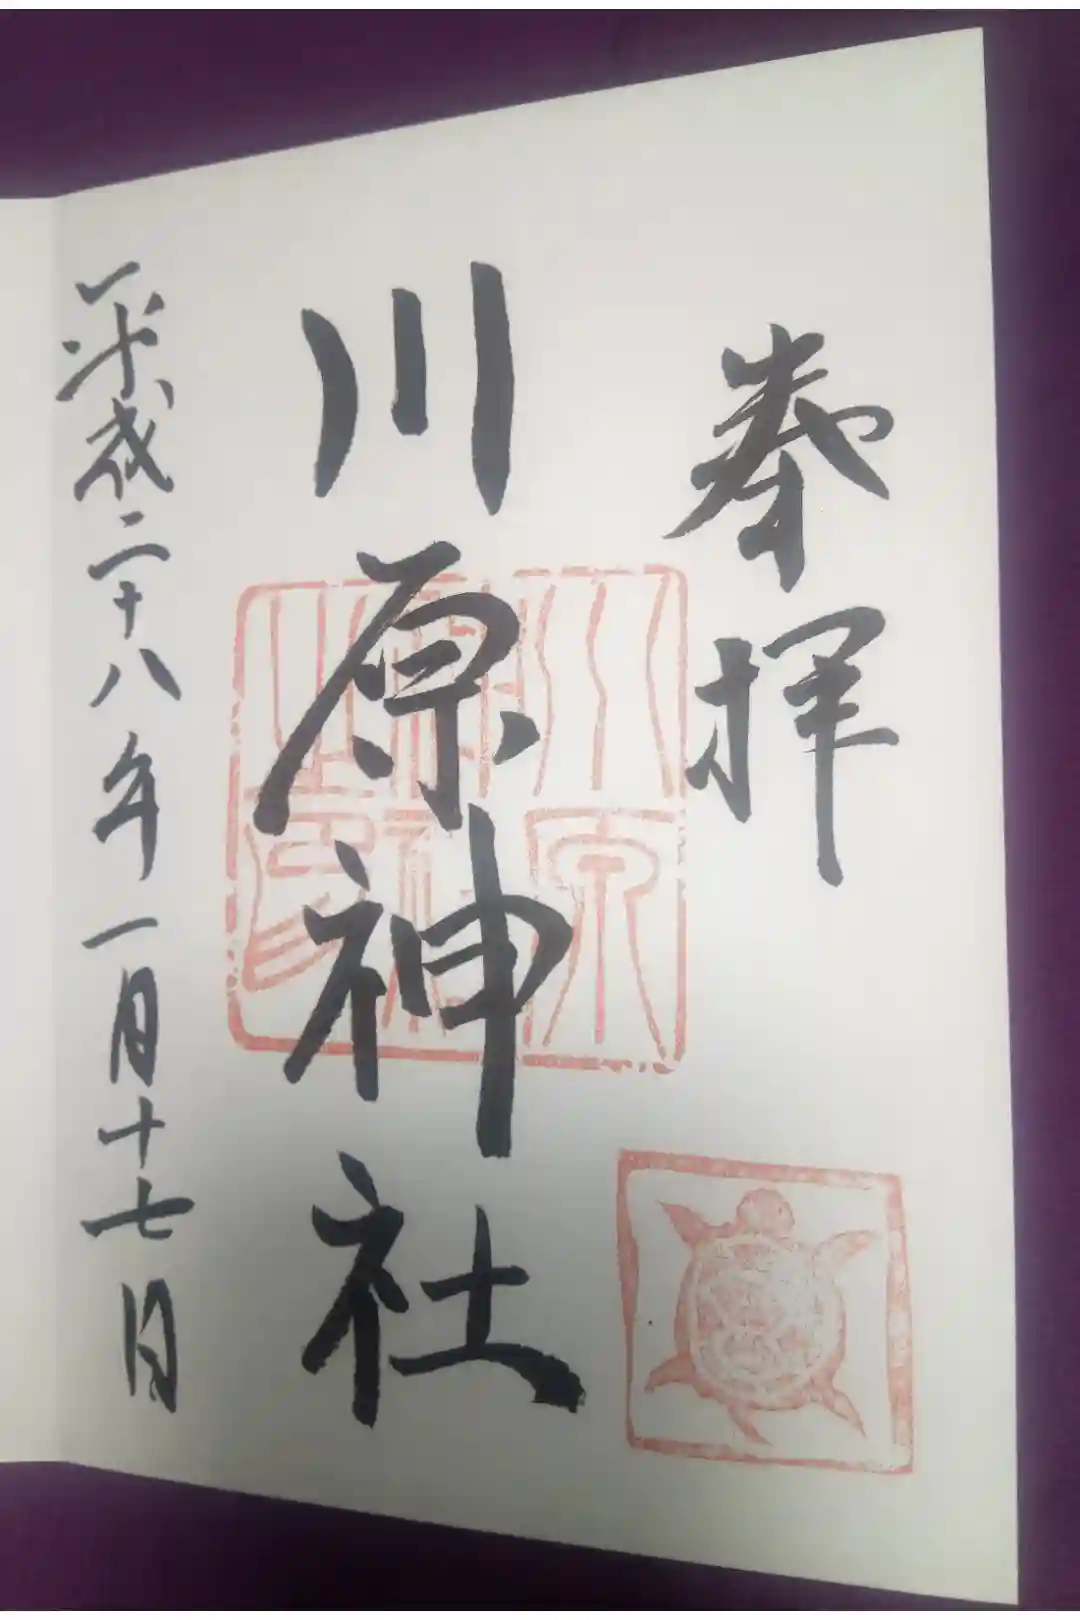 奉拝
川原神社
川原神社之印
平成二十八年一月十七日